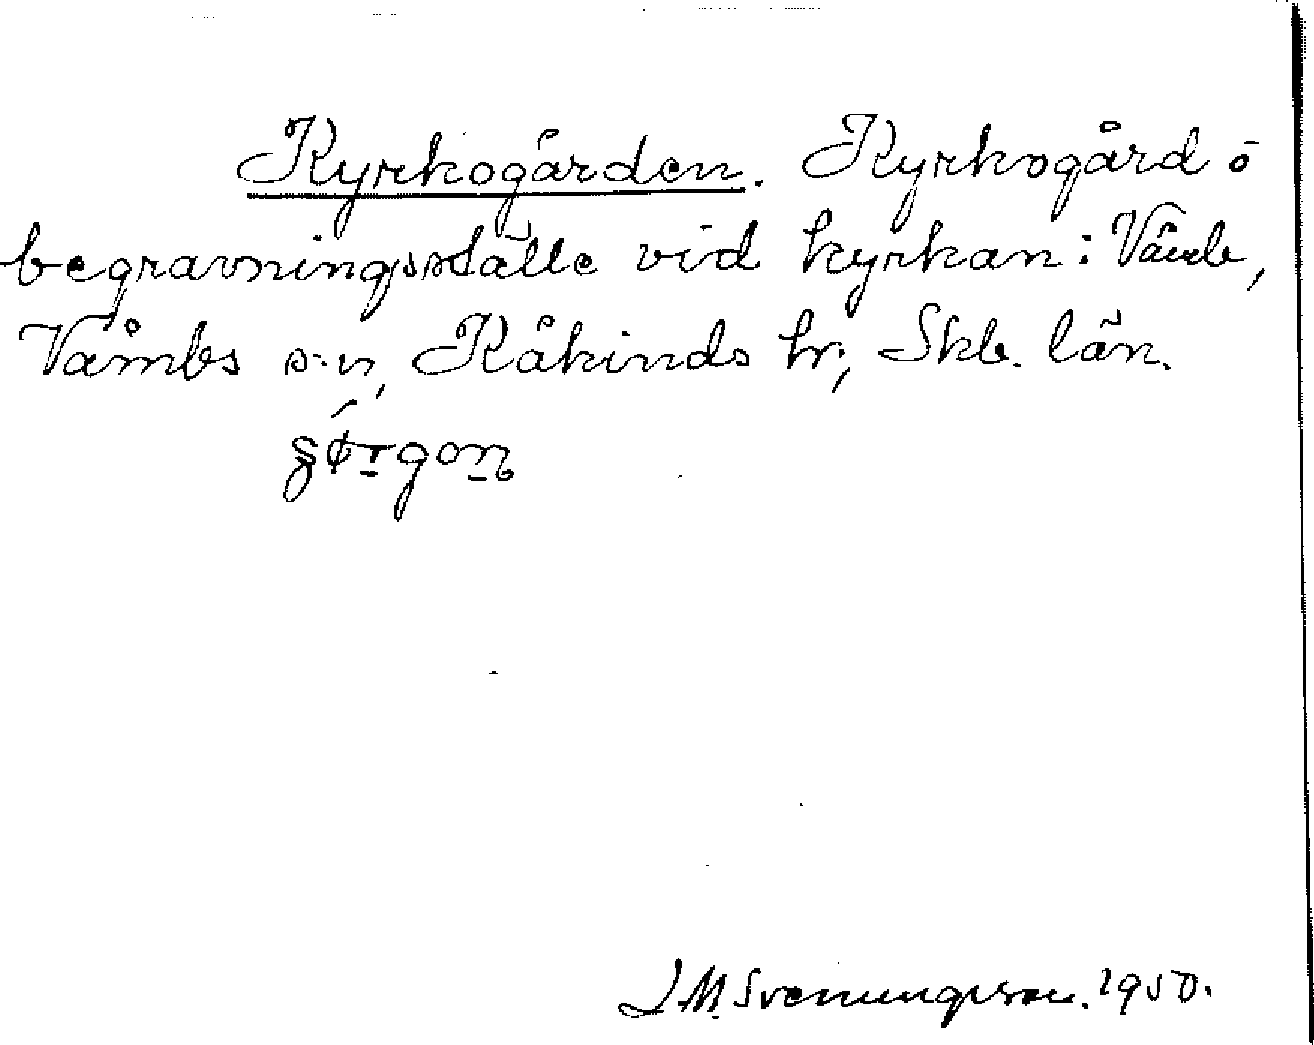 Kyrkogården. Kyrkogård o
begravningsställe vid kyrkan i Våmb,
Våmbs s:n, Kåkinds hr, Skb. län.
J.M. Svenungsson. 1950.